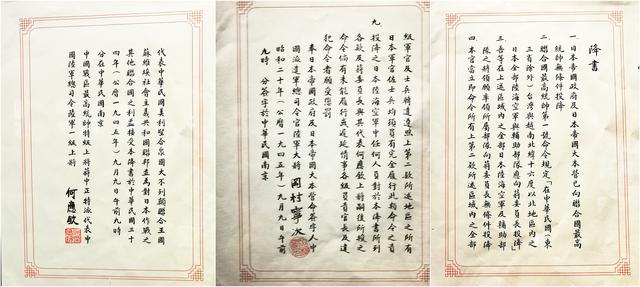 降書
一 日本帝國政府及日本帝國大本營已向聯合國最高
統帥無條件投降
二 聯合國最高統帥第一號命令規定「在中華民國(東
三省除外)台灣與越南北緯十六度以北地區內之
日本全部陸海空軍與輔助部隊應向蔣委員長投降」
三 吾等在上述區域內之全部日本陸海空軍及輔助部
隊之將領願率領所屬部隊向蔣委員長無條件投降
四 本官當立即命令所有上第二款所述區域內之全部
級軍官及士兵轉達遵照上第二款所述地區之所有
日本軍官佐士兵均須負有完全履行此類命令之責
九 投降之日本陸海空軍中任何人員對於本降書所列
各款及蔣委員長與其代表何應欽上將嗣後所授之
命令倘有未能履行或遲延情事各級負責官長及違
犯命令者願受懲罰
奉日本帝國政府及日本帝國大本營命簽字人中
國派遣軍總司令官陸軍大將 岡村寧次
昭和二十年(公曆一九四五年)九月九日午前
九時 分簽字於中華民國南京
代表中華民國美利堅合眾國大不列顛聯合王國
蘇維埃社會主義共和國聯邦並為對日本作戰之
其他聯合國之利益接受本降書於中華民國三十
四年(公曆一九四五年)九月九日午前九時
分在中華民國南京
中國戰區最高統帥特級上將蔣中正特派代表中
國陸軍總司令陸軍一級上將
何應欽